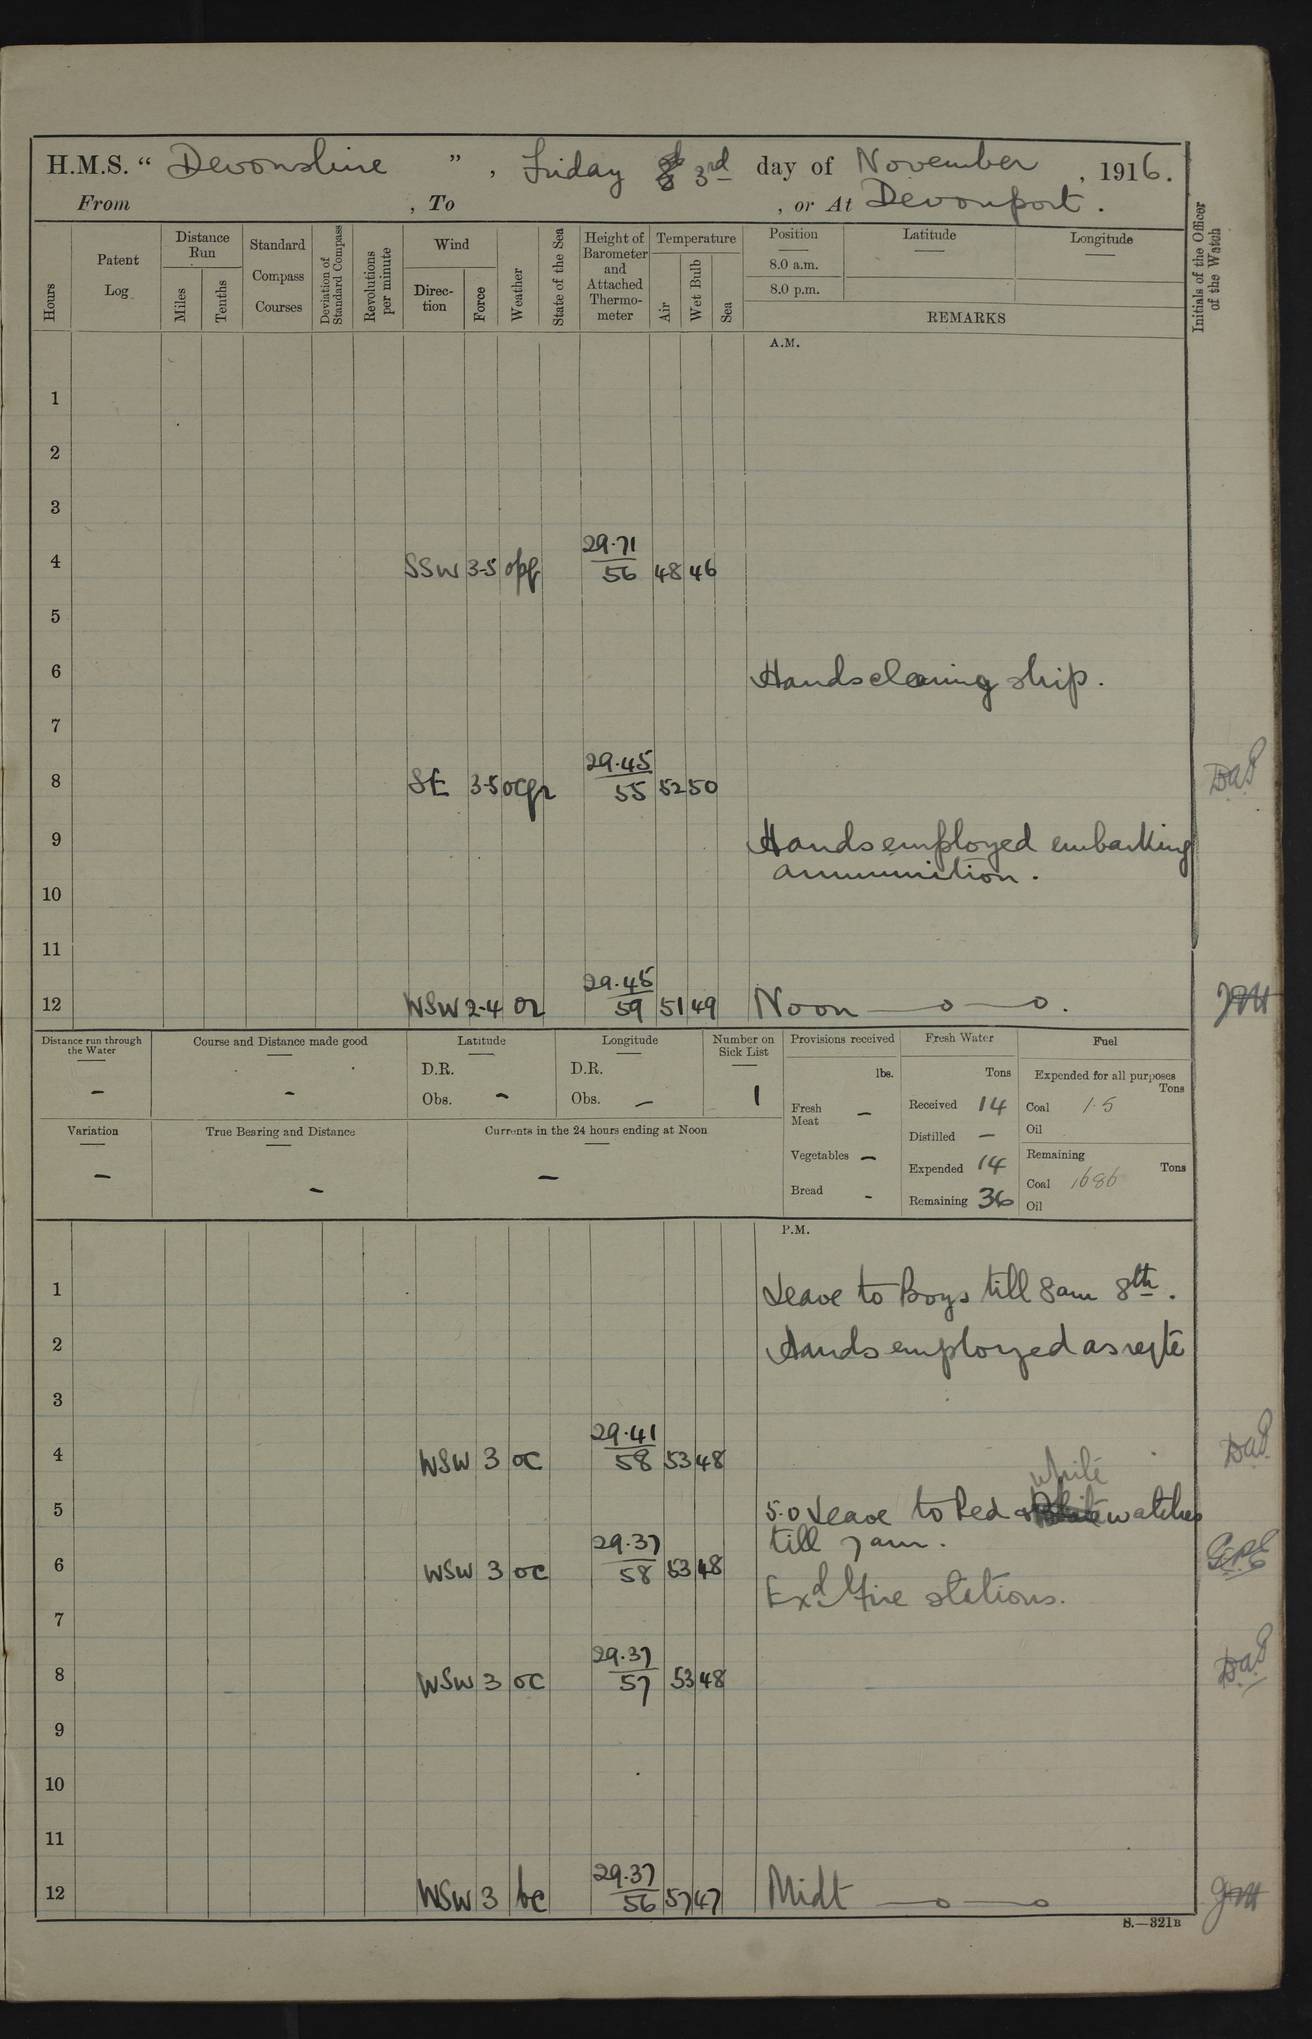 H.M.S. “ Devonshire ” , Friday 3rd day of November , 1916.
From , To , or At Devonport .
Hours
Patent Log
Distance Run
Miles
Tenths
Standard Compass Courses
Deviation of Standard Compass
Revolutions per minute
Wind
Direc-tion
Force
Weather
State of the Sea
Height of Barometer and Attached Thermo-meter
Temperature
Air
Wet Bulb
Sea
Position
8.0 a.m.
8.0 p.m.
Latitude
Longitude
REMARKS
Initials of the Officer of the Watch
A.M.
1
2
3
4 SSW 3-5 29.71 56 48 46
5
6 Hands cleaning ship.
7
8 SE 3-5 29.45 55 52 50
9 Hands employed embarking
ammunition.
10
11
12 WSW 2-4 or 29.45 59 51 49 Noon —o—o.
Distance run through the Water
–
Course and Distance made good
–
Latitude
D.R.
Obs. –
Longitude
D.R.
Obs. –
Number on Sick List
1
Provisions received
lbs.
Fresh Meat –
Vegetables –
Bread -
Fresh Water
Tons
Received 14
Distilled –
Expended 14
Remaining 36
Fuel
Expended for all purposes
Tons
Coal 1.5
Oil
Remaining
Tons
Coal 1686
Oil
Variation
–
True Bearing and Distance
–
Currents in the 24 hours ending at Noon
–
P.M.
1 Leave to Boys till 8am 8th.
2 Hands employed as reqte
3
4 WSW 3 oc 29.41 58 53 48
white
5 5.0 Leave to Red & watches
till 7am.
6 WSW 3 oc 29.37 58 53 48
Exd fire stations.
7
8 WSW 3 oc 29.37 57 53 48
9
10
11
12 WSW 3 bc 29.37 56 57 47 Midt —o—o
S.—321B